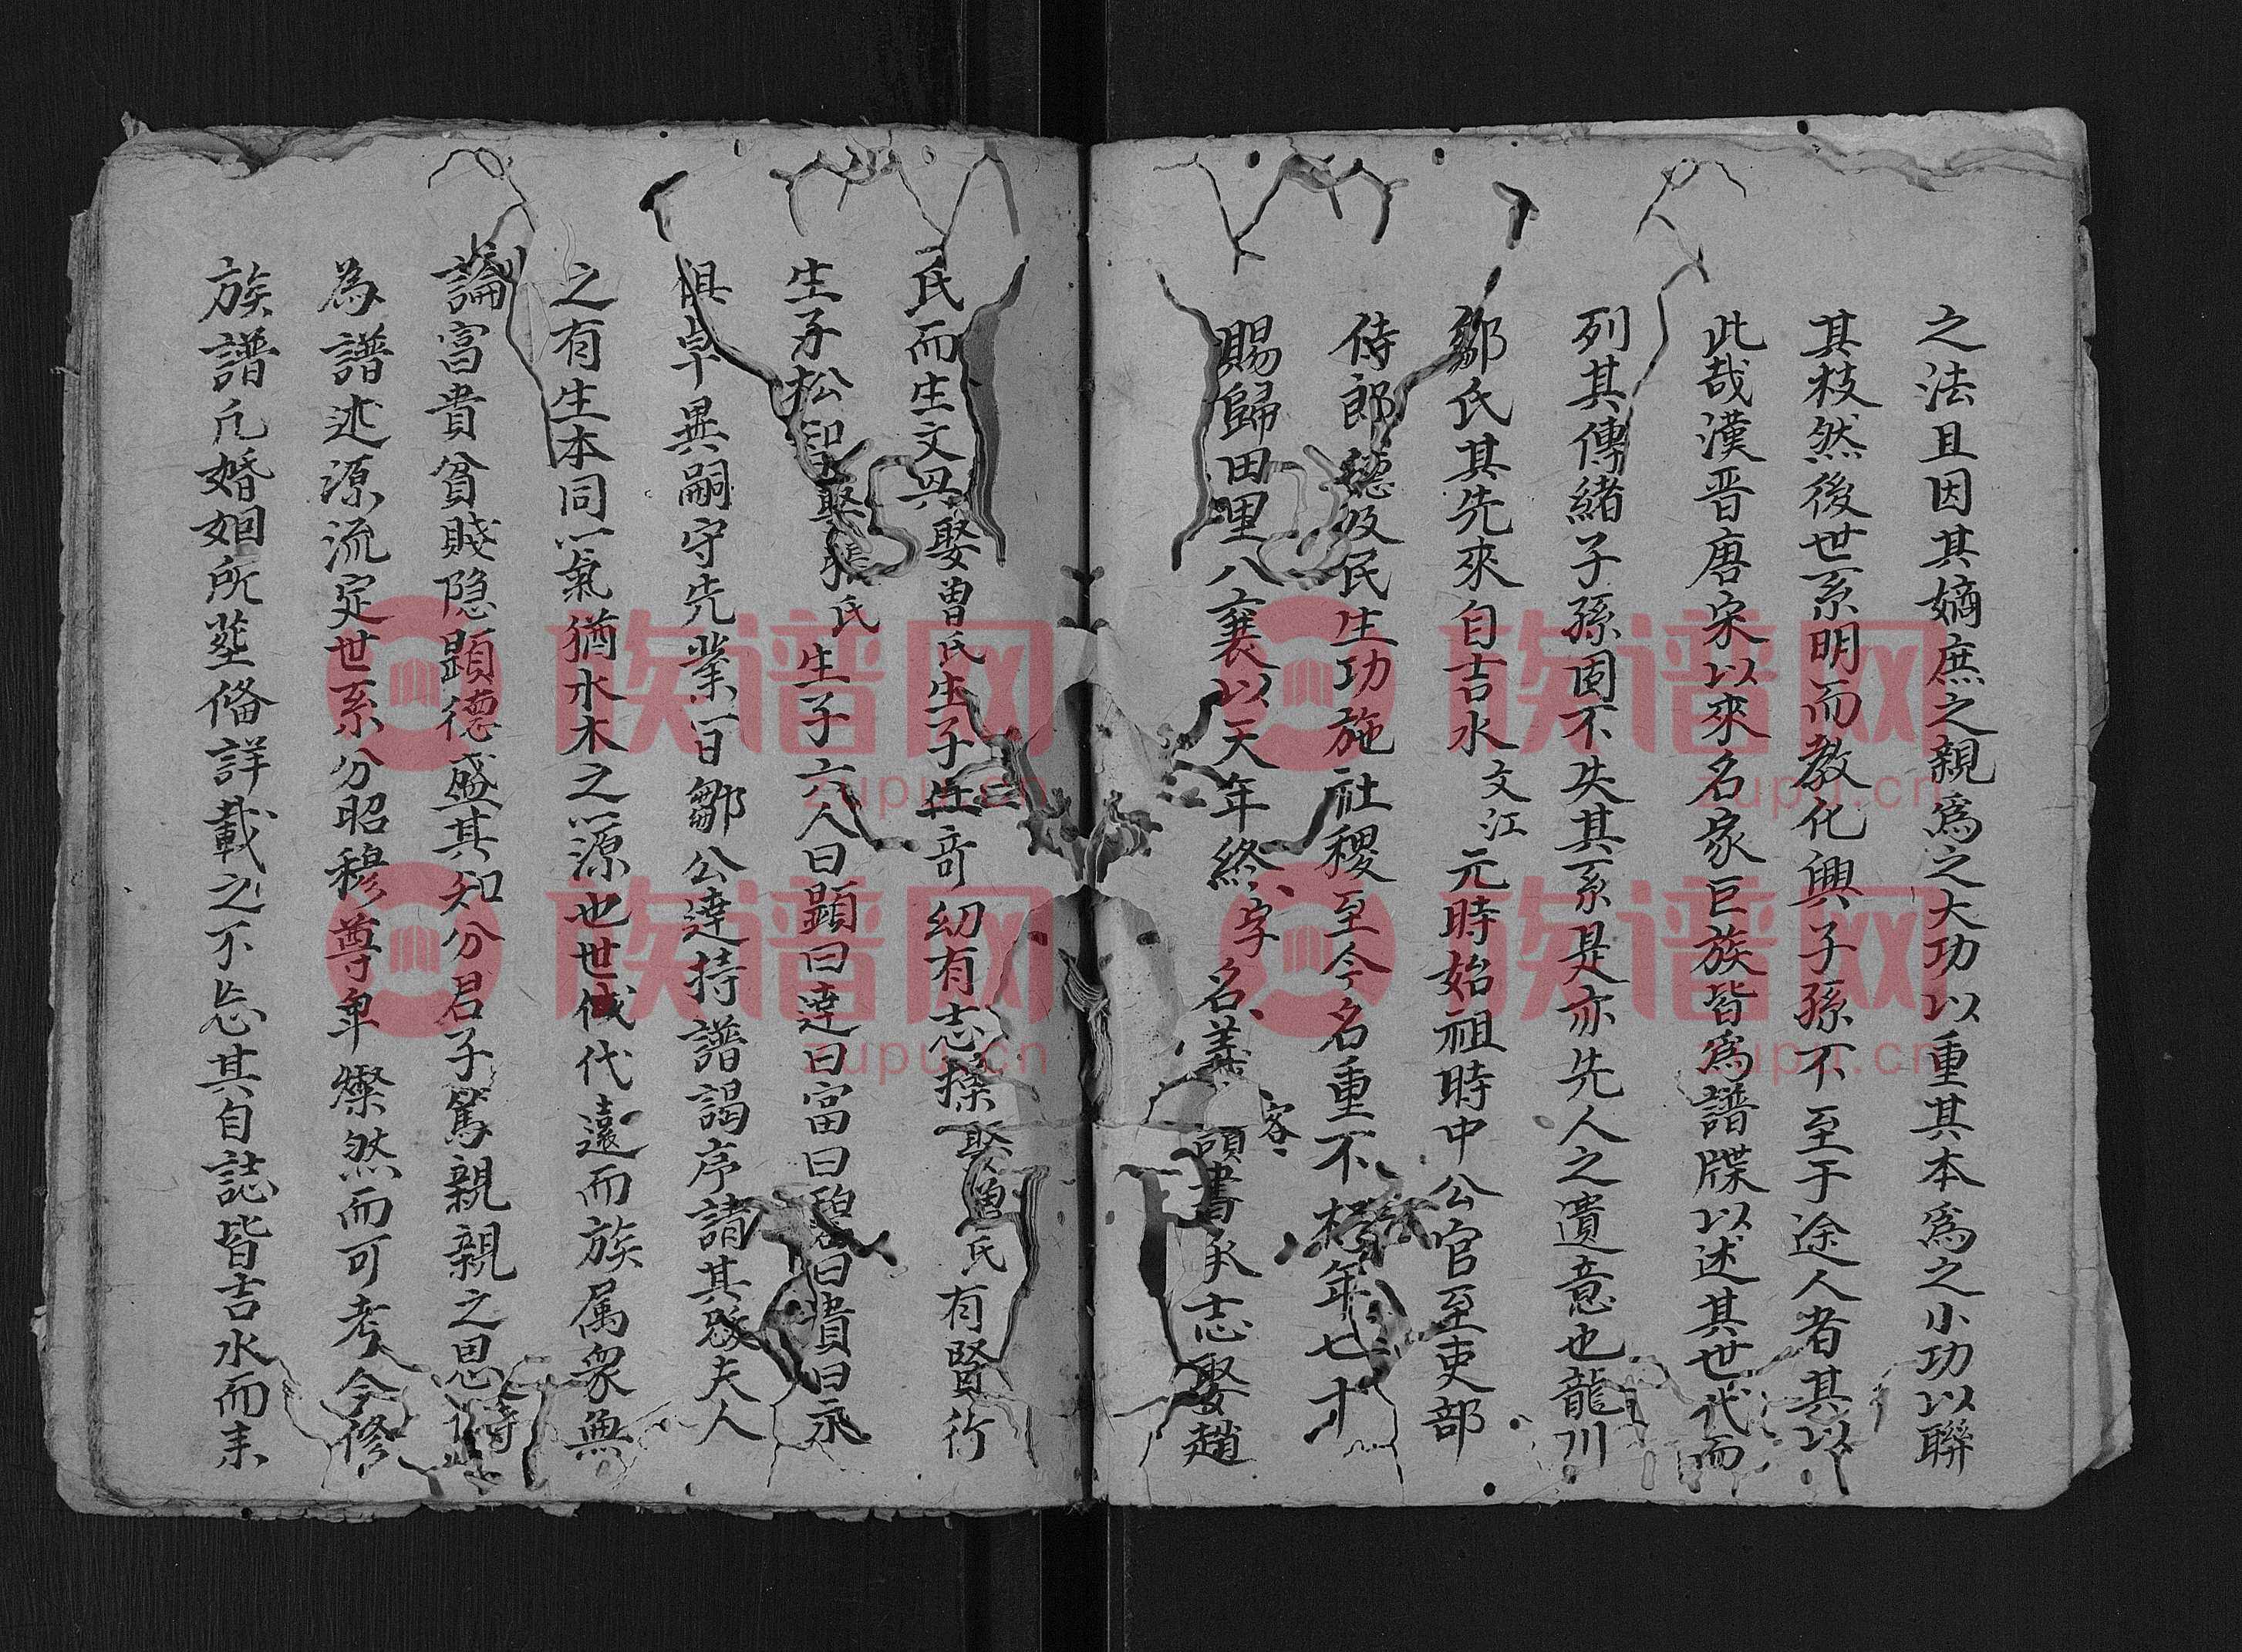 之法且因其嫡庶之親爲之大功以重其本爲之小功以聯
其枝然後世系明而教化興子孫不至于途人者其以
此哉漢晋唐宋以來名家巨族皆爲譜牒以述其世代而
列其傳緒子孫固不失其系是亦先人之遺意也龍川
鄒氏其先來自吉水文江元時始祖時中公官至吏部
侍郎德及民生功施社稷至今名重不朽年七十
賜歸田里八襄以天年終字名義客頭書承志娶趙
氏而生文與娶曾氏生子仕奇幼有志操娶曾氏有賢行
生子松智娶張氏生子六人曰顕曰達曰富曰碧曰貴曰永
俱卓異嗣守先業一日鄒公達持譜謁序請其啟夫人
之有生本同一氣猶水木之一源也世代代遠而族属衆無
論富貴貧賤隐顕德盛其知分君子篤親親之恩特
為譜述源流定世系分昭穆尊卑燦然而可考今修
族譜凡婚姻所塟俻詳載之不忘其自誌皆吉水而来
族谱网
zupu.cn
族谱网
zupu.cn
族谱网
zupu.cn
族谱网
zupu.cn